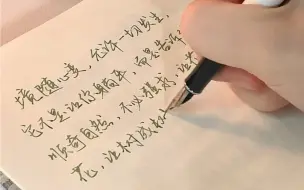 境随心变，允许一切发生
它不是让你躺平，而是告诉
顺其自然，不必强求，让花
花，让树成树